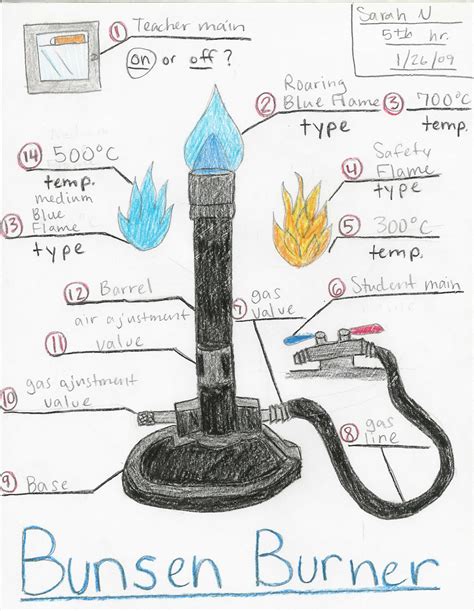 ① Teacher main
on or off ?
Sarah N
5th hr.
1/26/09
② Roaring
Blue Flame
type
③ 700°C
temp.
⑭ 500°C
temp.
④ Safety
Flame
type
⑬ medium
Blue
Flame
type
⑤ 300°C
temp.
⑥ Student main
⑫ Barrel
⑦ gas
valve
air ajustment
⑪ valve
⑩ gas ajustment
valve
⑧ gas
line
⑨ Base
A
Bunsen Burner